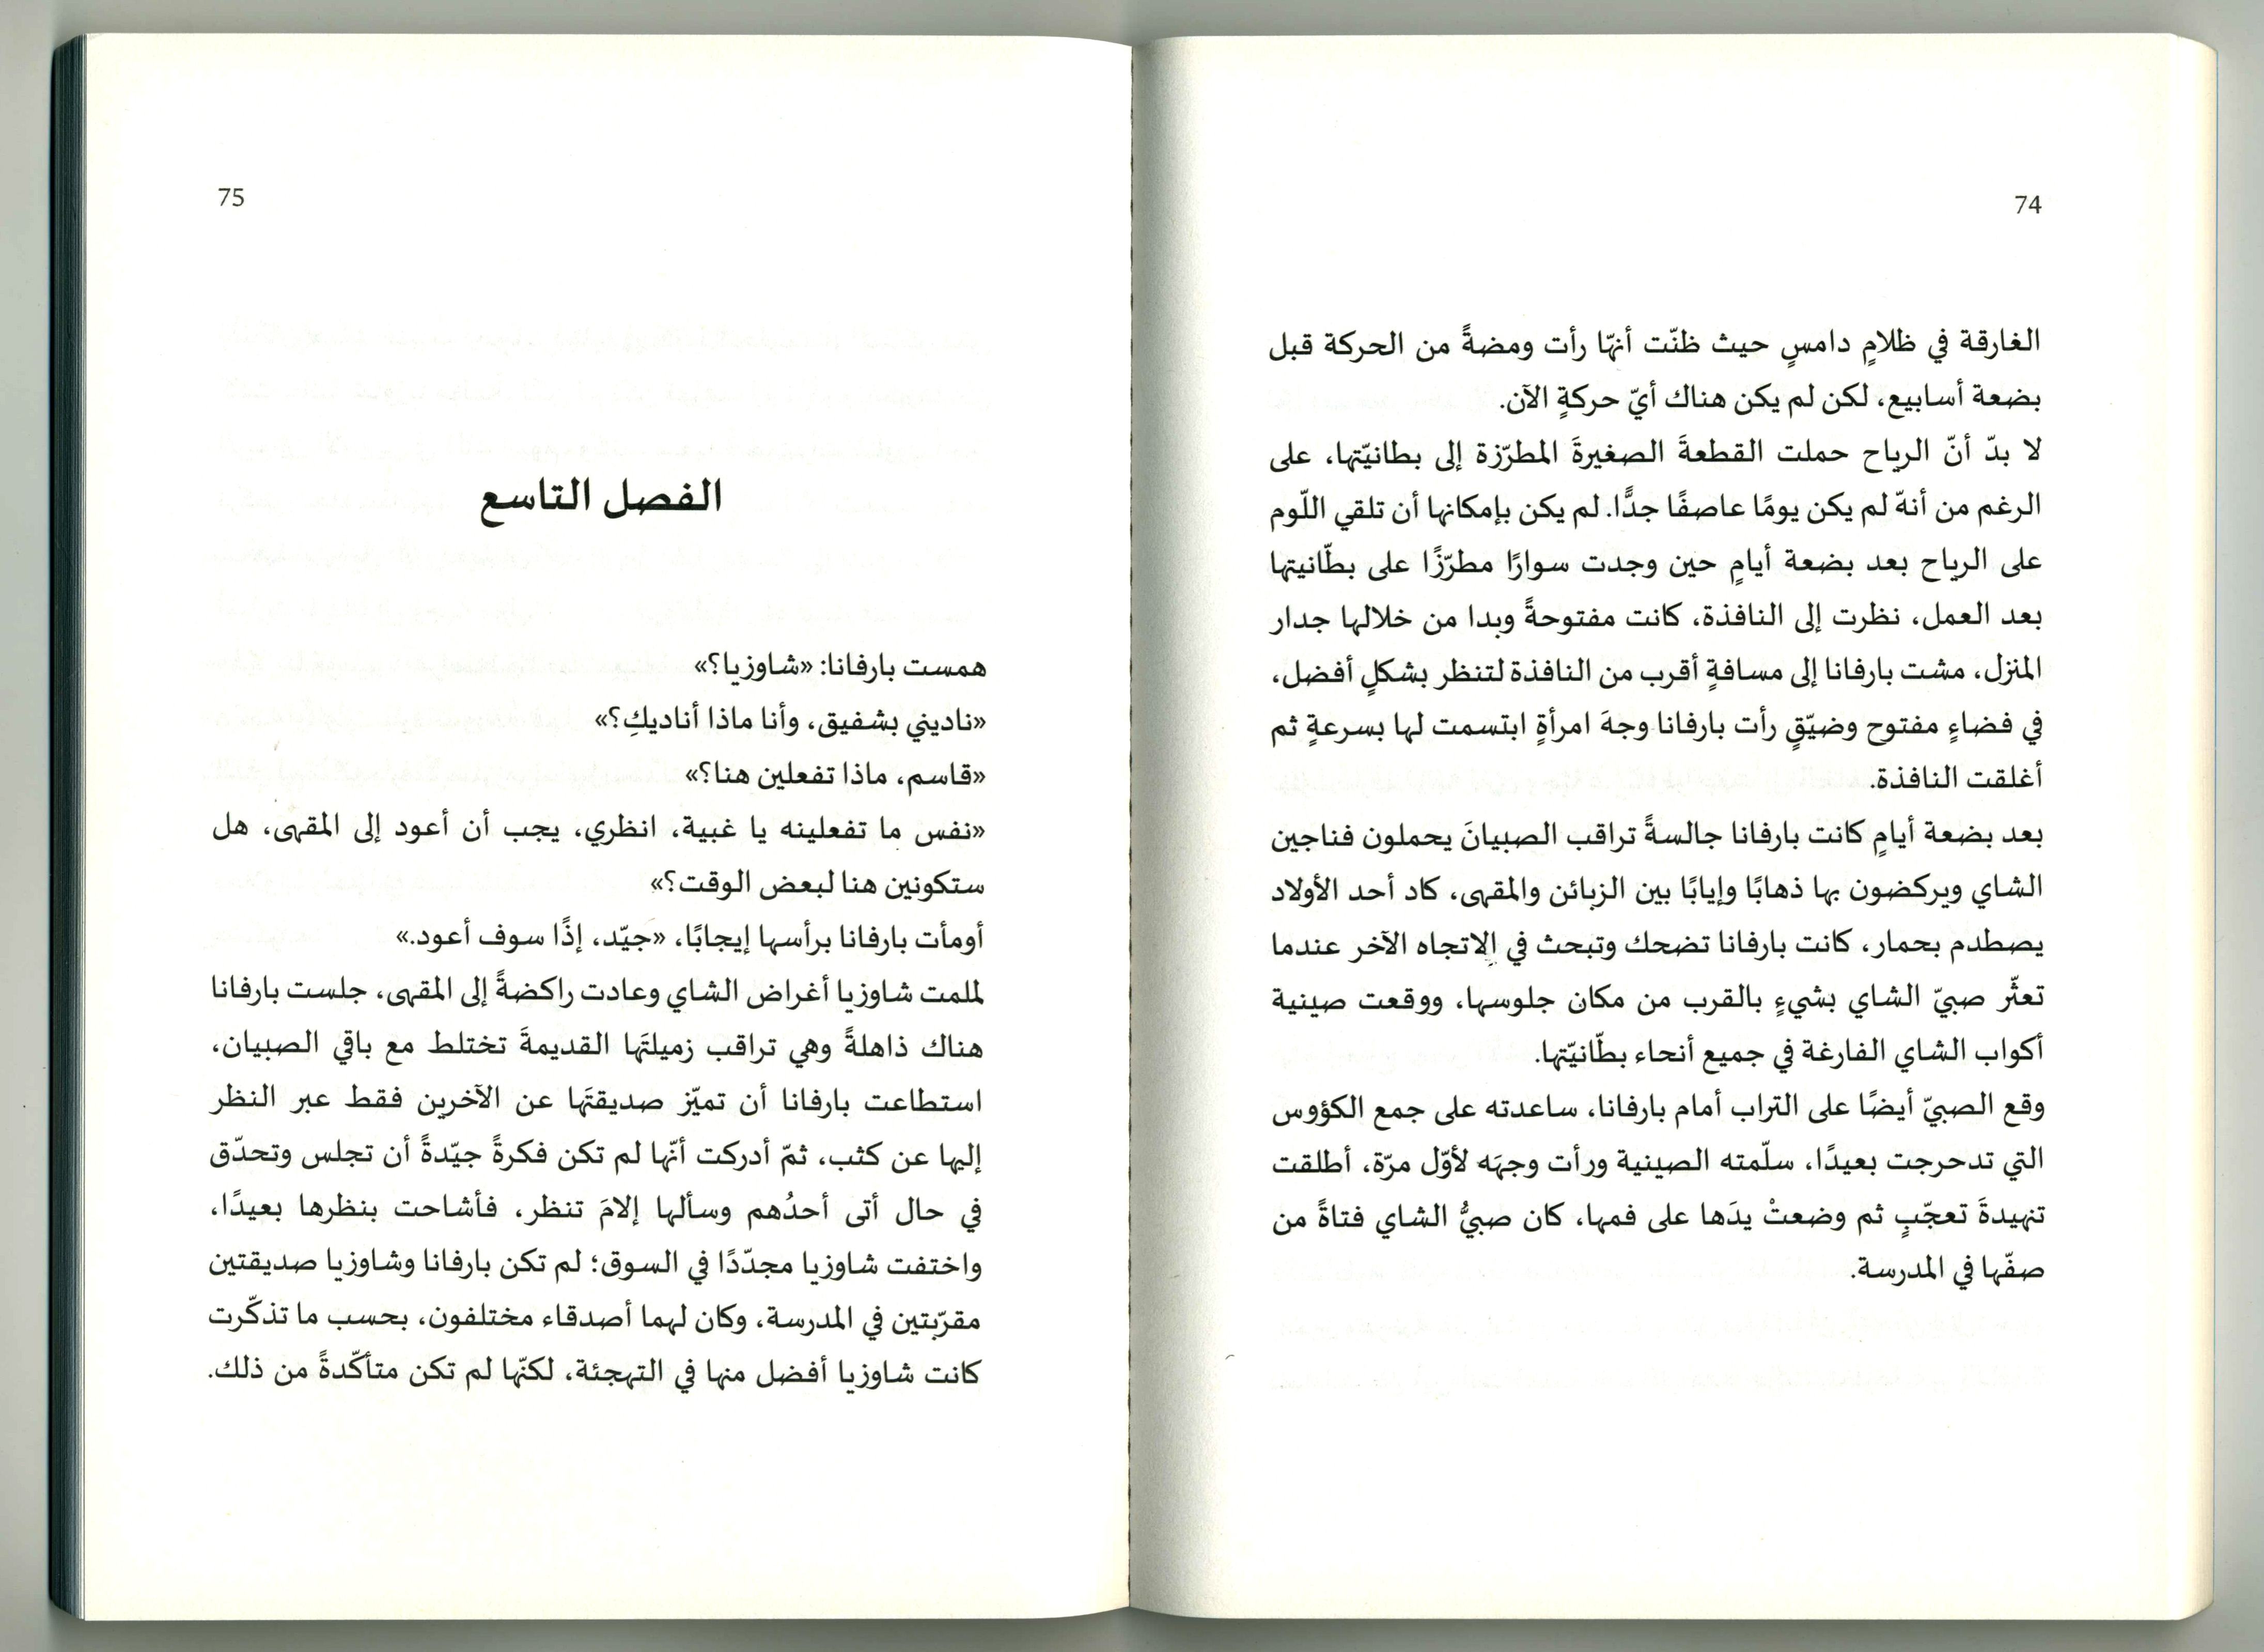 74
الغارقة في ظلامٍ دامسٍ حيث ظنّت أنهّا رأت ومضةً من الحركة قبل
بضعة أسابيع، لكن لم يكن هناك أيّ حركةٍ الآن.
لا بدّ أنّ الرياح حملت القطعةَ الصغيرةَ المطرّزة إلى بطانيّتها، على
الرغم من أنهّ لم يكن يومًا عاصفًا جدًّا. لم يكن بإمكانها أن تلقي اللّوم
على الرياح بعد بضعة أيامٍ حين وجدت سوارًا مطرّزًا على بطّانيتها
بعد العمل، نظرت إلى النافذة، كانت مفتوحةً وبدا من خلالها جدار
المنزل، مشت بارفانا إلى مسافةٍ أقرب من النافذة لتنظر بشكلٍ أفضل،
في فضاءٍ مفتوح وضيّقٍ رأت بارفانا وجهَ امرأةٍ ابتسمت لها بسرعةٍ ثم
أغلقت النافذة.
بعد بضعة أيامٍ كانت بارفانا جالسةً تراقب الصبيانَ يحملون فناجين
الشاي ويركضون بها ذهابًا وإيابًا بين الزبائن والمقهى، كاد أحد الأولاد
يصطدم بحمار، كانت بارفانا تضحك وتبحث في الاتجاه الآخر عندما
تعثّر صبيّ الشاي بشيءٍ بالقرب من مكان جلوسها، ووقعت صينية
أكواب الشاي الفارغة في جميع أنحاء بطّانيّتها.
وقع الصبيّ أيضًا على التراب أمام بارفانا، ساعدته على جمع الكؤوس
التي تدحرجت بعيدًا، سلّمته الصينية ورأت وجهَه لأوّل مرّة، أطلقت
تنهيدةَ تعجّبٍ ثم وضعتْ يدَها على فمها، كان صبيُّ الشاي فتاةً من
صفّها في المدرسة.
75
الفصل التاسع
همست بارفانا: «شاوزيا؟»
«ناديني بشفيق، وأنا ماذا أناديكِ؟»
«قاسم، ماذا تفعلين هنا؟»
«نفس ما تفعلينه يا غبية، انظري، يجب أن أعود إلى المقهى، هل
ستكونين هنا لبعض الوقت؟»
أومأت بارفانا برأسها إيجابًا، «جيّد، إذًا سوف أعود.»
لملمت شاوزيا أغراض الشاي وعادت راكضةً إلى المقهى، جلست بارفانا
هناك ذاهلةً وهي تراقب زميلتَها القديمةَ تختلط مع باقي الصبيان،
استطاعت بارفانا أن تميّز صديقتَها عن الآخرين فقط عبر النظر
إليها عن كثب، ثمّ أدركت أنّها لم تكن فكرةً جيّدةً أن تجلس وتحدّق
في حال أتى أحدُهم وسألها إلامَ تنظر، فأشاحت بنظرها بعيدًا،
واختفت شاوزيا مجدّدًا في السوق؛ لم تكن بارفانا وشاوزيا صديقتين
مقرّبتين في المدرسة، وكان لهما أصدقاء مختلفون، بحسب ما تذكّرت
كانت شاوزيا أفضل منها في التهجئة، لكنّها لم تكن متأكّدةً من ذلك.